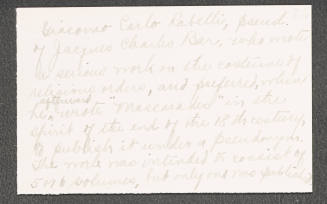 Giacomo Carlo Rabelli, pseud.
of Jacques Charles Bar, who wrote
a serious work on the costume of
religious orders, and preferred, when
afterward
he wrote "Mascarades" in the
spirit of the end of the 18th century,
to publish it under a pseudonym.
The work was intended to consist of
5 or 6 volumes, but only one was published